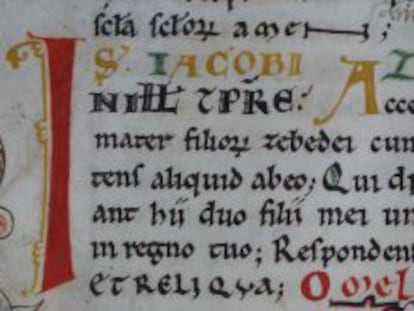 scła scłoꝝ amen;
S. IACOBI A
IN ILL TPRE.
Acce
mater filioꝝ zebedei cum
tens aliquid abeo; Qui di
ant hii duo filii mei un
in regno tuo; Respondent
ET RELIQVA; Omel